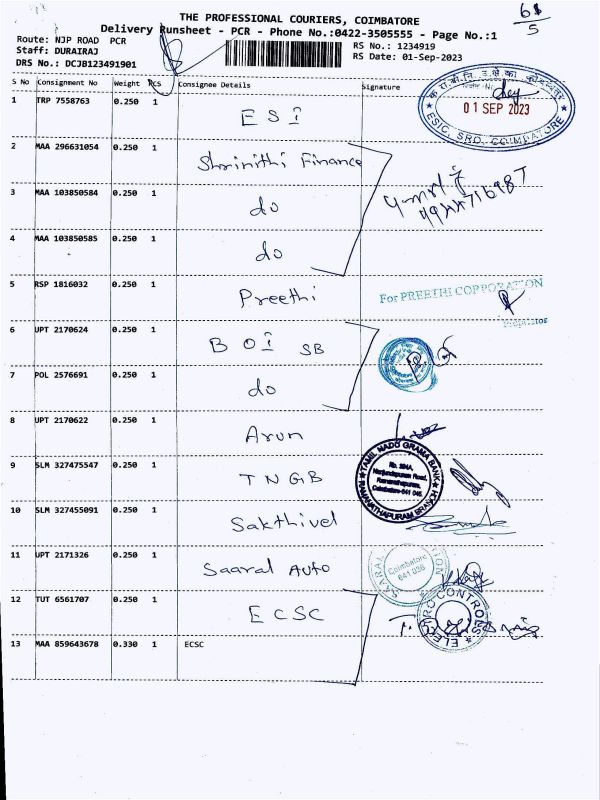 THE PROFESSIONAL COURIERS, COIMBATORE
Delivery Runsheet - PCR - Phone No.:0422-3505555 - Page No.:1
Route: NJP ROAD PCR
Staff: DURAIRAJ
DRS No.: DCJB123491901
RS No.: 1234919
RS Date: 01-Sep-2023
S No Consignment No Weight PCS Consignee Details Signature
1 TRP 7558763 0.250 1 ESI
01 SEP 2023
ESIC, SRO, COIMBATORE
2 MAA 296631054 0.250 1 Shrinithi Finance
3 MAA 103850584 0.250 1 do
4 MAA 103850585 0.250 1 do
5 RSP 1816032 0.250 1 Preethi
For PREETHI CORPORATION
Proprietor
6 UPT 2170624 0.250 1 BOI SB
7 POL 2576691 0.250 1 do
8 UPT 2170622 0.250 1 Arun
9 SLM 327475547 0.250 1 TNGB
TAMIL NADU GRAMA BANK
Nanjundapuram Road,
Ramanathapuram,
Coimbatore-641 045.
RAMANATHAPURAM BRANCH
10 SLM 327455091 0.250 1 Sakthivel
11 UPT 2171326 0.250 1 Saaral Auto
Coimbatore
641 036
12 TUT 6561707 0.250 1 ECSC
ELECTRO CONTROLS
13 MAA 859643678 0.330 1 ECSC